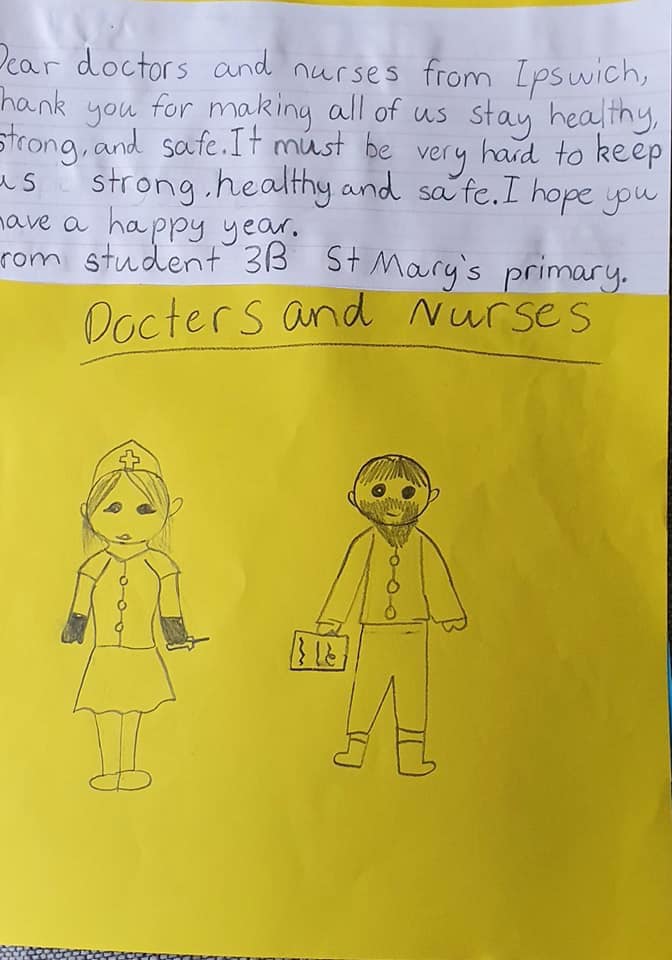 Dear doctors and nurses from Ipswich,
hank you for making all of us stay healthy,
strong, and safe. It must be very hard to keep
us strong, healthy and safe. I hope you
have a happy year.
rom student 3B St Mary's primary.
Docters and Nurses